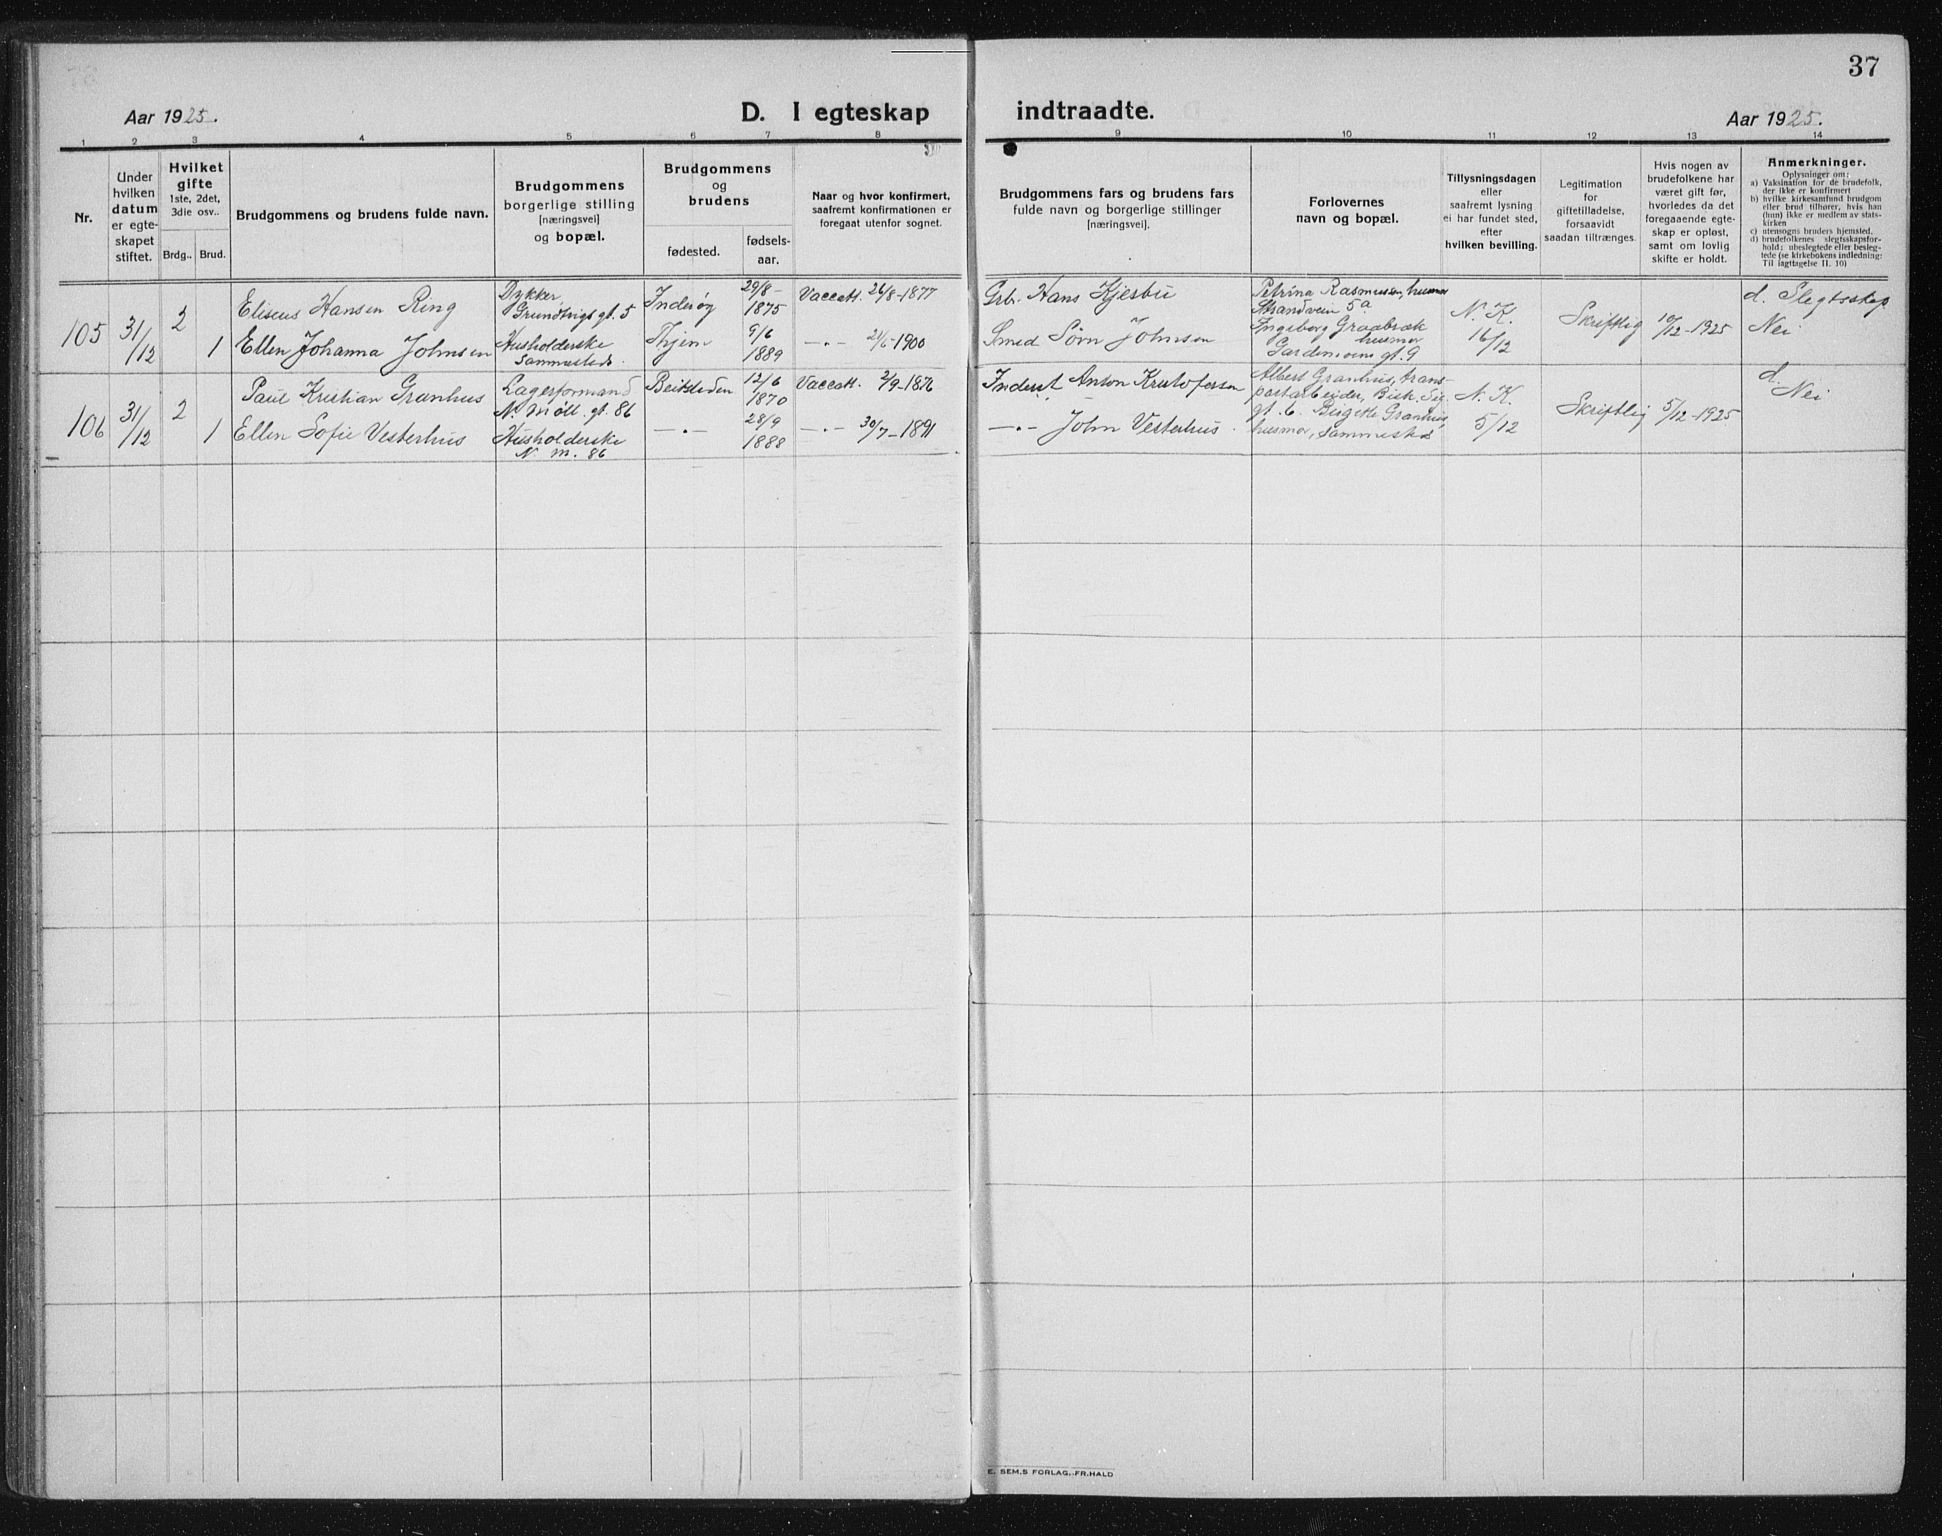 37
Aar 1925.
D. I egteskap
indtraadte.
Aar 1925.
1 2 3 4 5 6 7 8 9 10 11 12 13 14
Nr.
Under
hvilken
datum
er egte-
skapet
stiftet.
Hvilket
gifte
1ste, 2det,
3die osv..
Brdg.. Brud.
Brudgommens og brudens fulde navn.
Brudgommens
borgerlige stilling
[næringsvei]
og bopæl.
Brudgommens
og
brudens
fødested.
fødsels-
aar.
Naar og hvor konfirmert,
saafremt konfirmationen er
foregaat utenfor sognet.
Brudgommens fars og brudens fars
fulde navn og borgerlige stillinger
[næringsvei].
Forlovernes
navn og bopæl.
Tillysningsdagen
eller
saafremt lysning
ei har fundet sted,
efter
hvilken bevilling.
Legitimation
for
giftetilladelse,
forsaavidt
saadan tiltrænges.
Hvis nogen av
brudefolkene har
været gift før,
hvorledes da det
foregaaende egte-
skap er opløst,
samt om lovlig
skifte er holdt.
Anmerkninger.
Oplysninger om:
a) Vaksination for de brudefolk,
der ikke er konfirmert
b) hvilke kirkesamfund brudgom
eller brud tilhører, hvis han
(hun) ikke er medlem av stats-
kirken
c) utensogns bruders hjemsted.
d) brudefolkenes slegtsskapsfor-
hold: ubeslegtede eller besleg-
tede (se kirkebokens indledning:
Til iagttagelse II. 10)
105
31/12
2
1
Eliseus Hansen Ring
Ellen Johanna Johnsen
Dykker,
Grundtvigsgt. 5
Husholderske
Sammesteds.
Inderøy
Thjem
29/8-
1875
9/6
1889
Vaccatt. 26/8-1877
-"- 21/6-1900
Grb. Hans Kjesbu
Smed Sørn Johnsen
Petrina Rasmussen, husmor
Strandvein 5a
Ingeborg Graabræk
husmor
Gardemoens gt. 9
N. K.
16/12
Skriftlig
10/12-1925
d. Slegtsskap
Nei
106
31/12
2
1
Paul Kristian Granhus
Ellen Sofie Vesterhus
Lagerformand
N. Møll. gt. 86
Husholderske
N. M. 86
Beitstaden
-"-
12/6
1870
28/9
1888
Vaccatt. 2/9-1876
-"- 30/7-1891
Inderst Anton Kristofersen
-"- John Vesterhus.
Albert Granhus, trans-
portarbeider, Bisk. Sig.
gt. 6. Birgitte Granhus,
husmor, Sammesteds
N. K.
5/12
Skriftlig
5/12-1925
d.
Nei
E. SEM.S FORLAG,.FR.HALD